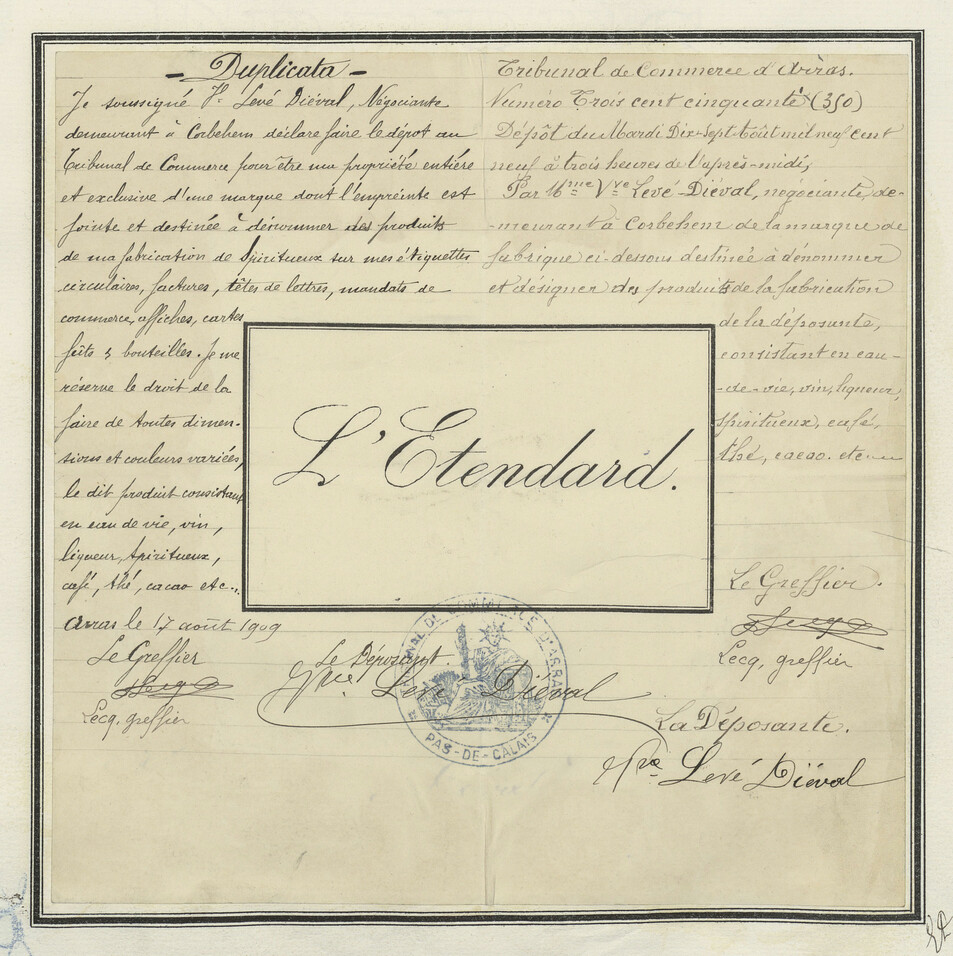 - Duplicata -
Je soussigné Ve Levé Diéval, Négociante
demeurant à Corbehem déclare faire le dépôt au
Tribunal de Commerce pour être ma propriété entière
et exclusive d'une marque dont l'empreinte est
jointe et destinée à dénommer des produits
de ma fabrication de Spiritueux sur mes étiquettes
circulaires, factures, têtes de lettres, mandats de
commerce, affiches, cartes
fûts & bouteilles. Je me
réserve le droit de la
faire de toutes dimen-
sions et couleurs variées,
le dit produit consistant
en eau de vie, vin,
liqueur, spiritueux,
café, thé, cacao etc...
Arras le 17 août 1909
Le Greffier
Lecq, greffier
Le Déposant.
Vve Levé Diéval
Tribunal de Commerce d'Arras.
Numéro Trois cent cinquante (350)
Dépôt du Mardi Dix-Sept Août mil neuf cent
neuf à trois heures de l'après-midi,
Par Mme Vve Levé-Diéval, négociante, de-
-meurant à Corbehem de la marque de
fabrique ci-dessous destinée à dénommer
et désigner des produits de la fabrication
de la déposante,
consistant en eau-
-de-vie, vin, liqueur,
spiritueux, café,
thé, cacao. etc
L'Etendard.
Le Greffier.
Lecq, greffier
La Déposante.
Vve Levé Diéval
TRIBUNAL DE COMMERCE D'ARRAS
PAS-DE-CALAIS